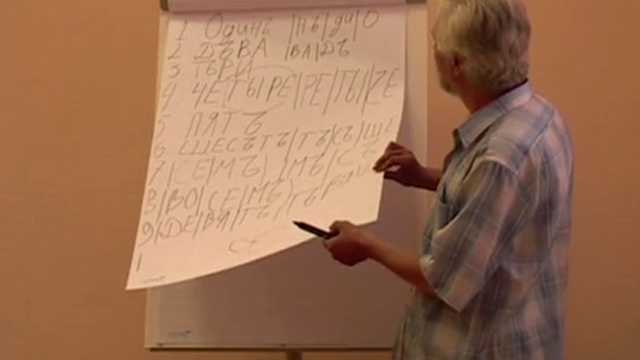 1 Одинъ|нъ|ди|О
2 ДЪВА |ВА|ДЪ
3 ТЪРИ
4. ЧЕТЫРЕ|РЕ|ТЫ|ЧЕ
5 ПЯТЪ
6 ШЕСЪТЪ|ТЪ|СЪ|ШЕ
7 |СЕ|МЪ| |МЪ| СЪ
8| ВО|СЕ|МЪ|
9| ДЕ|ВЯ|ТЪ|ТЪ
1